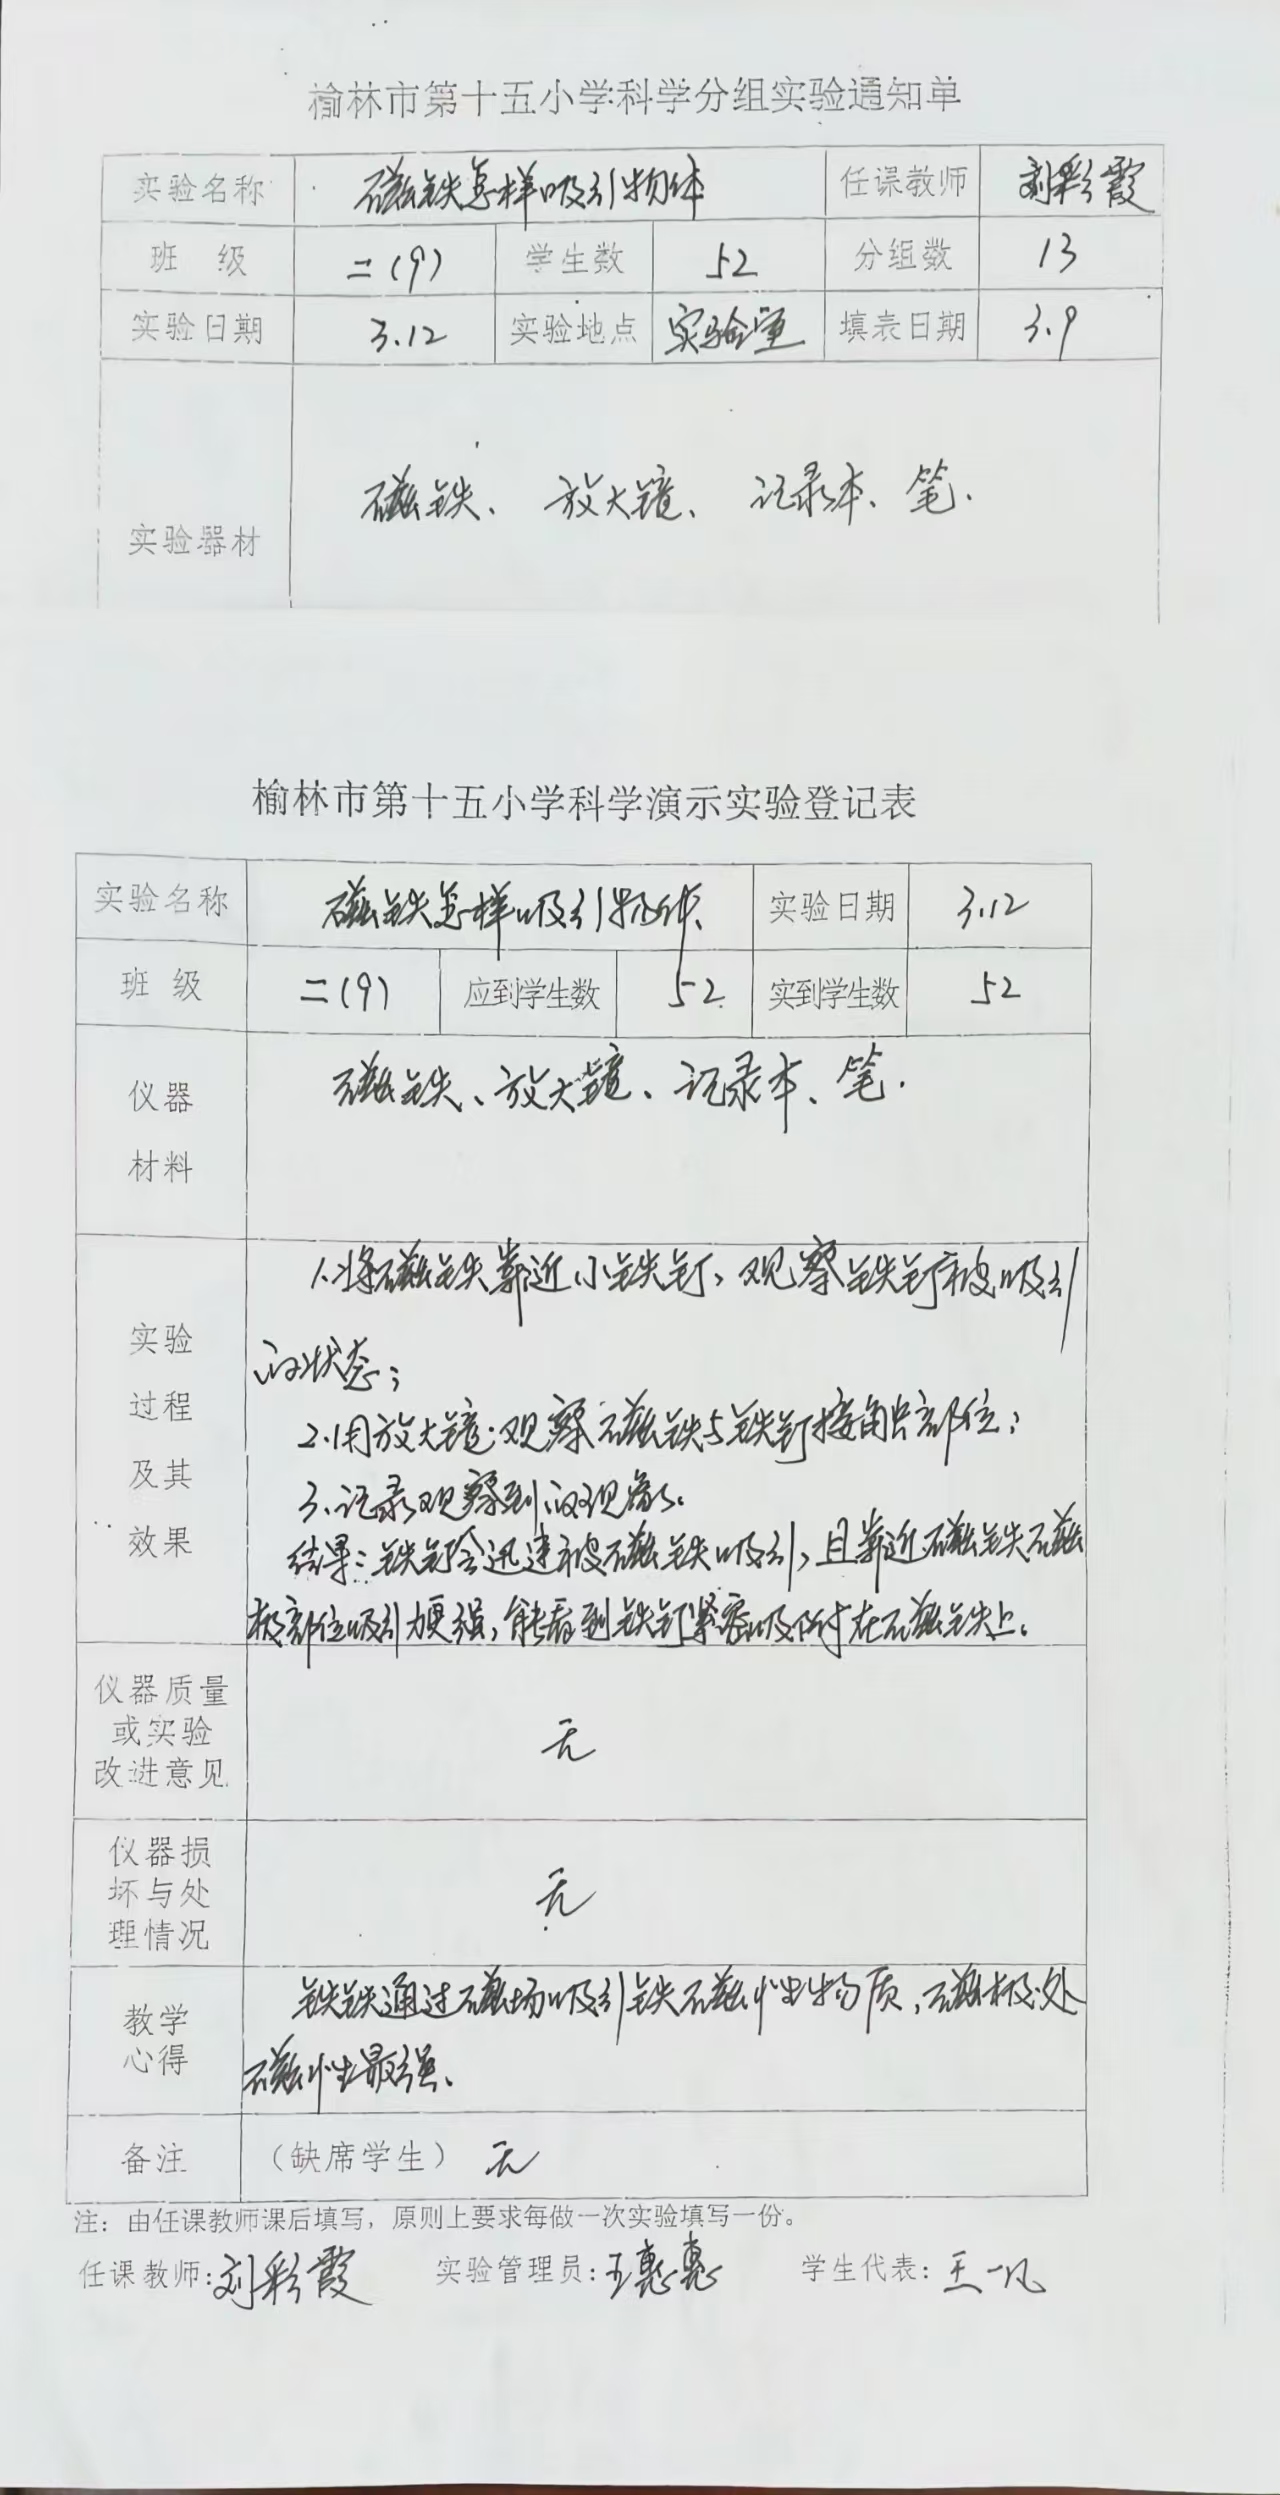 榆林市第十五小学科学分组实验通知单
实验名称 磁铁怎样吸引物体 任课教师 刘彩霞
班 级 二(9) 学生数 52 分组数 13
实验日期 3.12 实验地点 实验室 填表日期 3.9
实验器材 磁铁、放大镜、记录本、笔.
榆林市第十五小学科学演示实验登记表
实验名称 磁铁怎样吸引物体 实验日期 3.12
班 级 二(9) 应到学生数 52 实到学生数 52
仪器
材料
磁铁、放大镜、记录本、笔.
实验
过程
及其
效果
1.将磁铁靠近小铁钉,观察铁钉被吸引
的状态;
2.用放大镜观察磁铁与铁钉接触部位;
3.记录观察到的现象.
结果:铁钉会迅速被磁铁吸引,且靠近磁铁磁
极部位吸引力更强,能看到铁钉紧密吸附在磁铁上。
仪器质量
或实验
改进意见
无
仪器损
坏与处
理情况
无
教学
心得
铁铁通过磁场吸引铁磁性物质,磁极处
磁性最强.
备注 (缺席学生) 无
注:由任课教师课后填写,原则上要求每做一次实验填写一份。
任课教师:刘彩霞 实验管理员:王惠惠 学生代表:王一凡